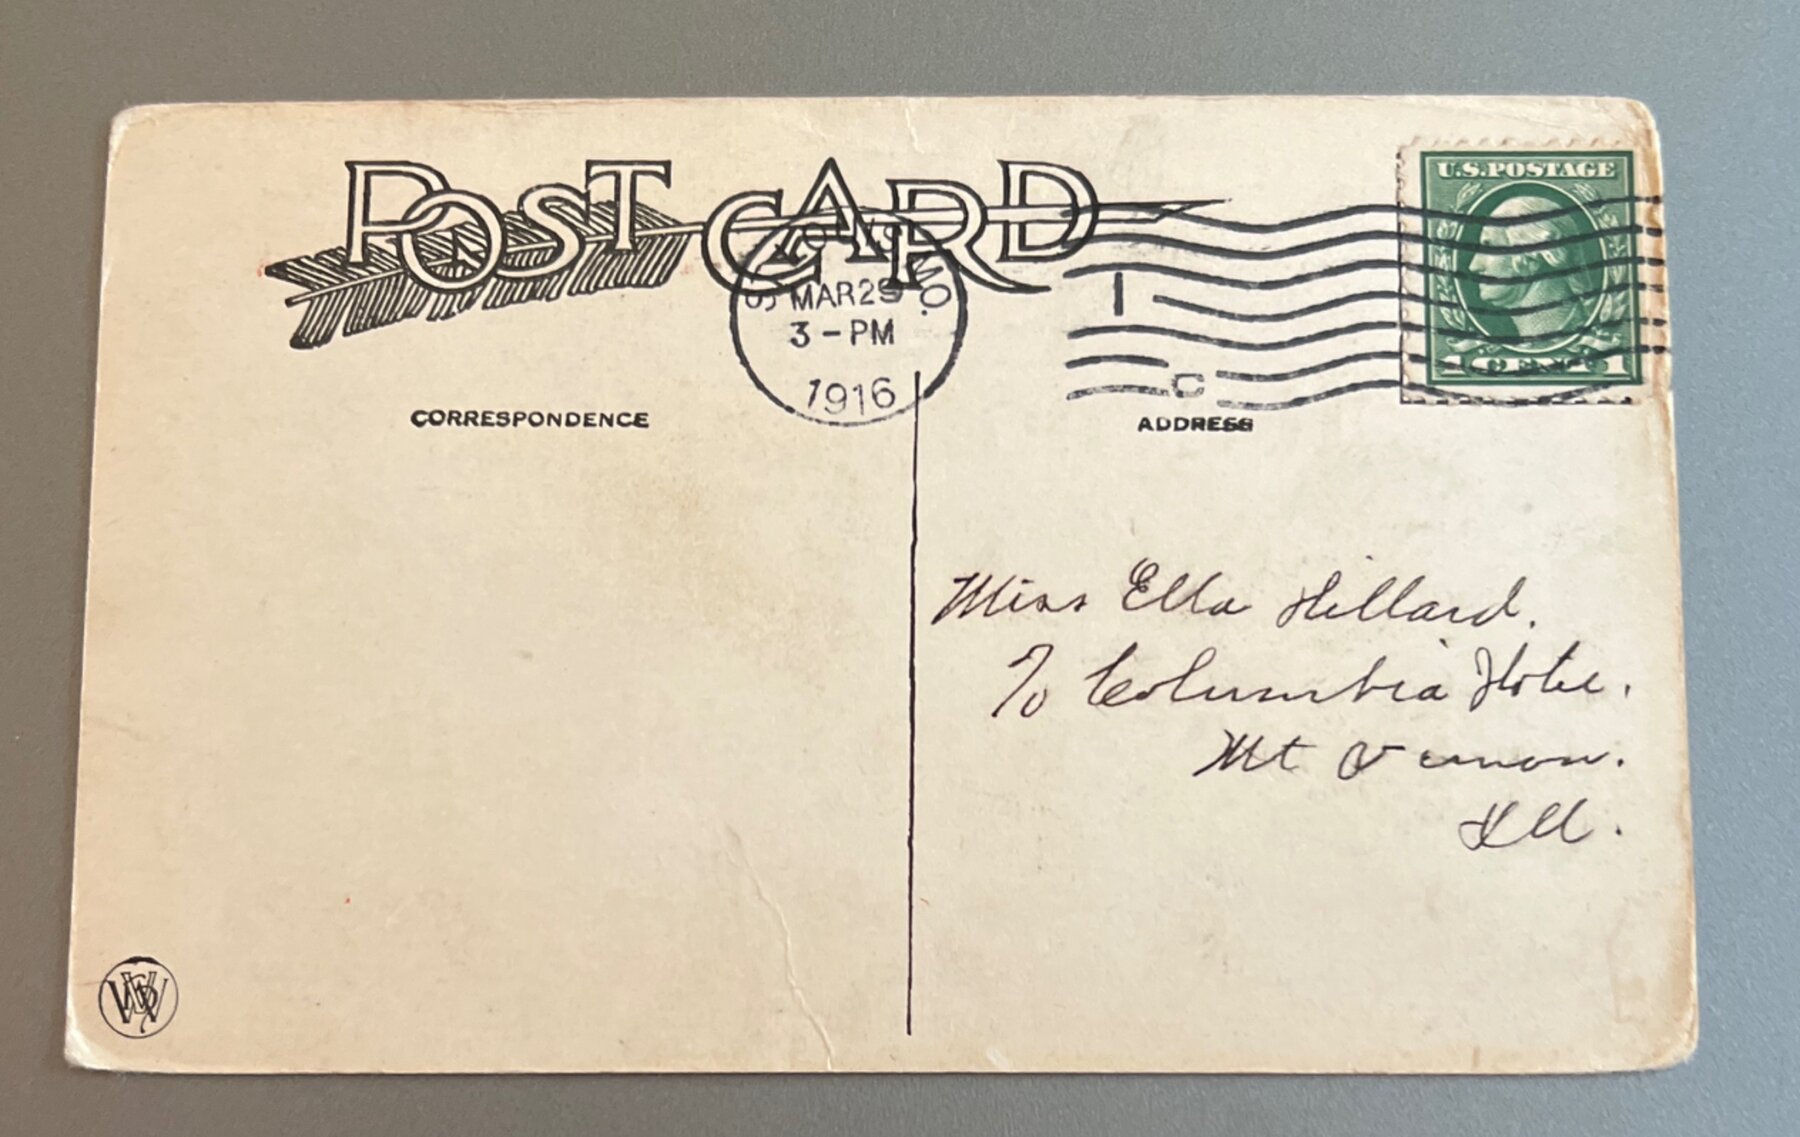 POST CARD
ST. LOUIS, MO.
MAR 29
3-PM
1916
1
C
U.S. POSTAGE
1 CENT 1
CORRESPONDENCE
ADDRESS
Miss Ella Hillard.
To Columbia Hotel.
Mt Vernon.
Ill.